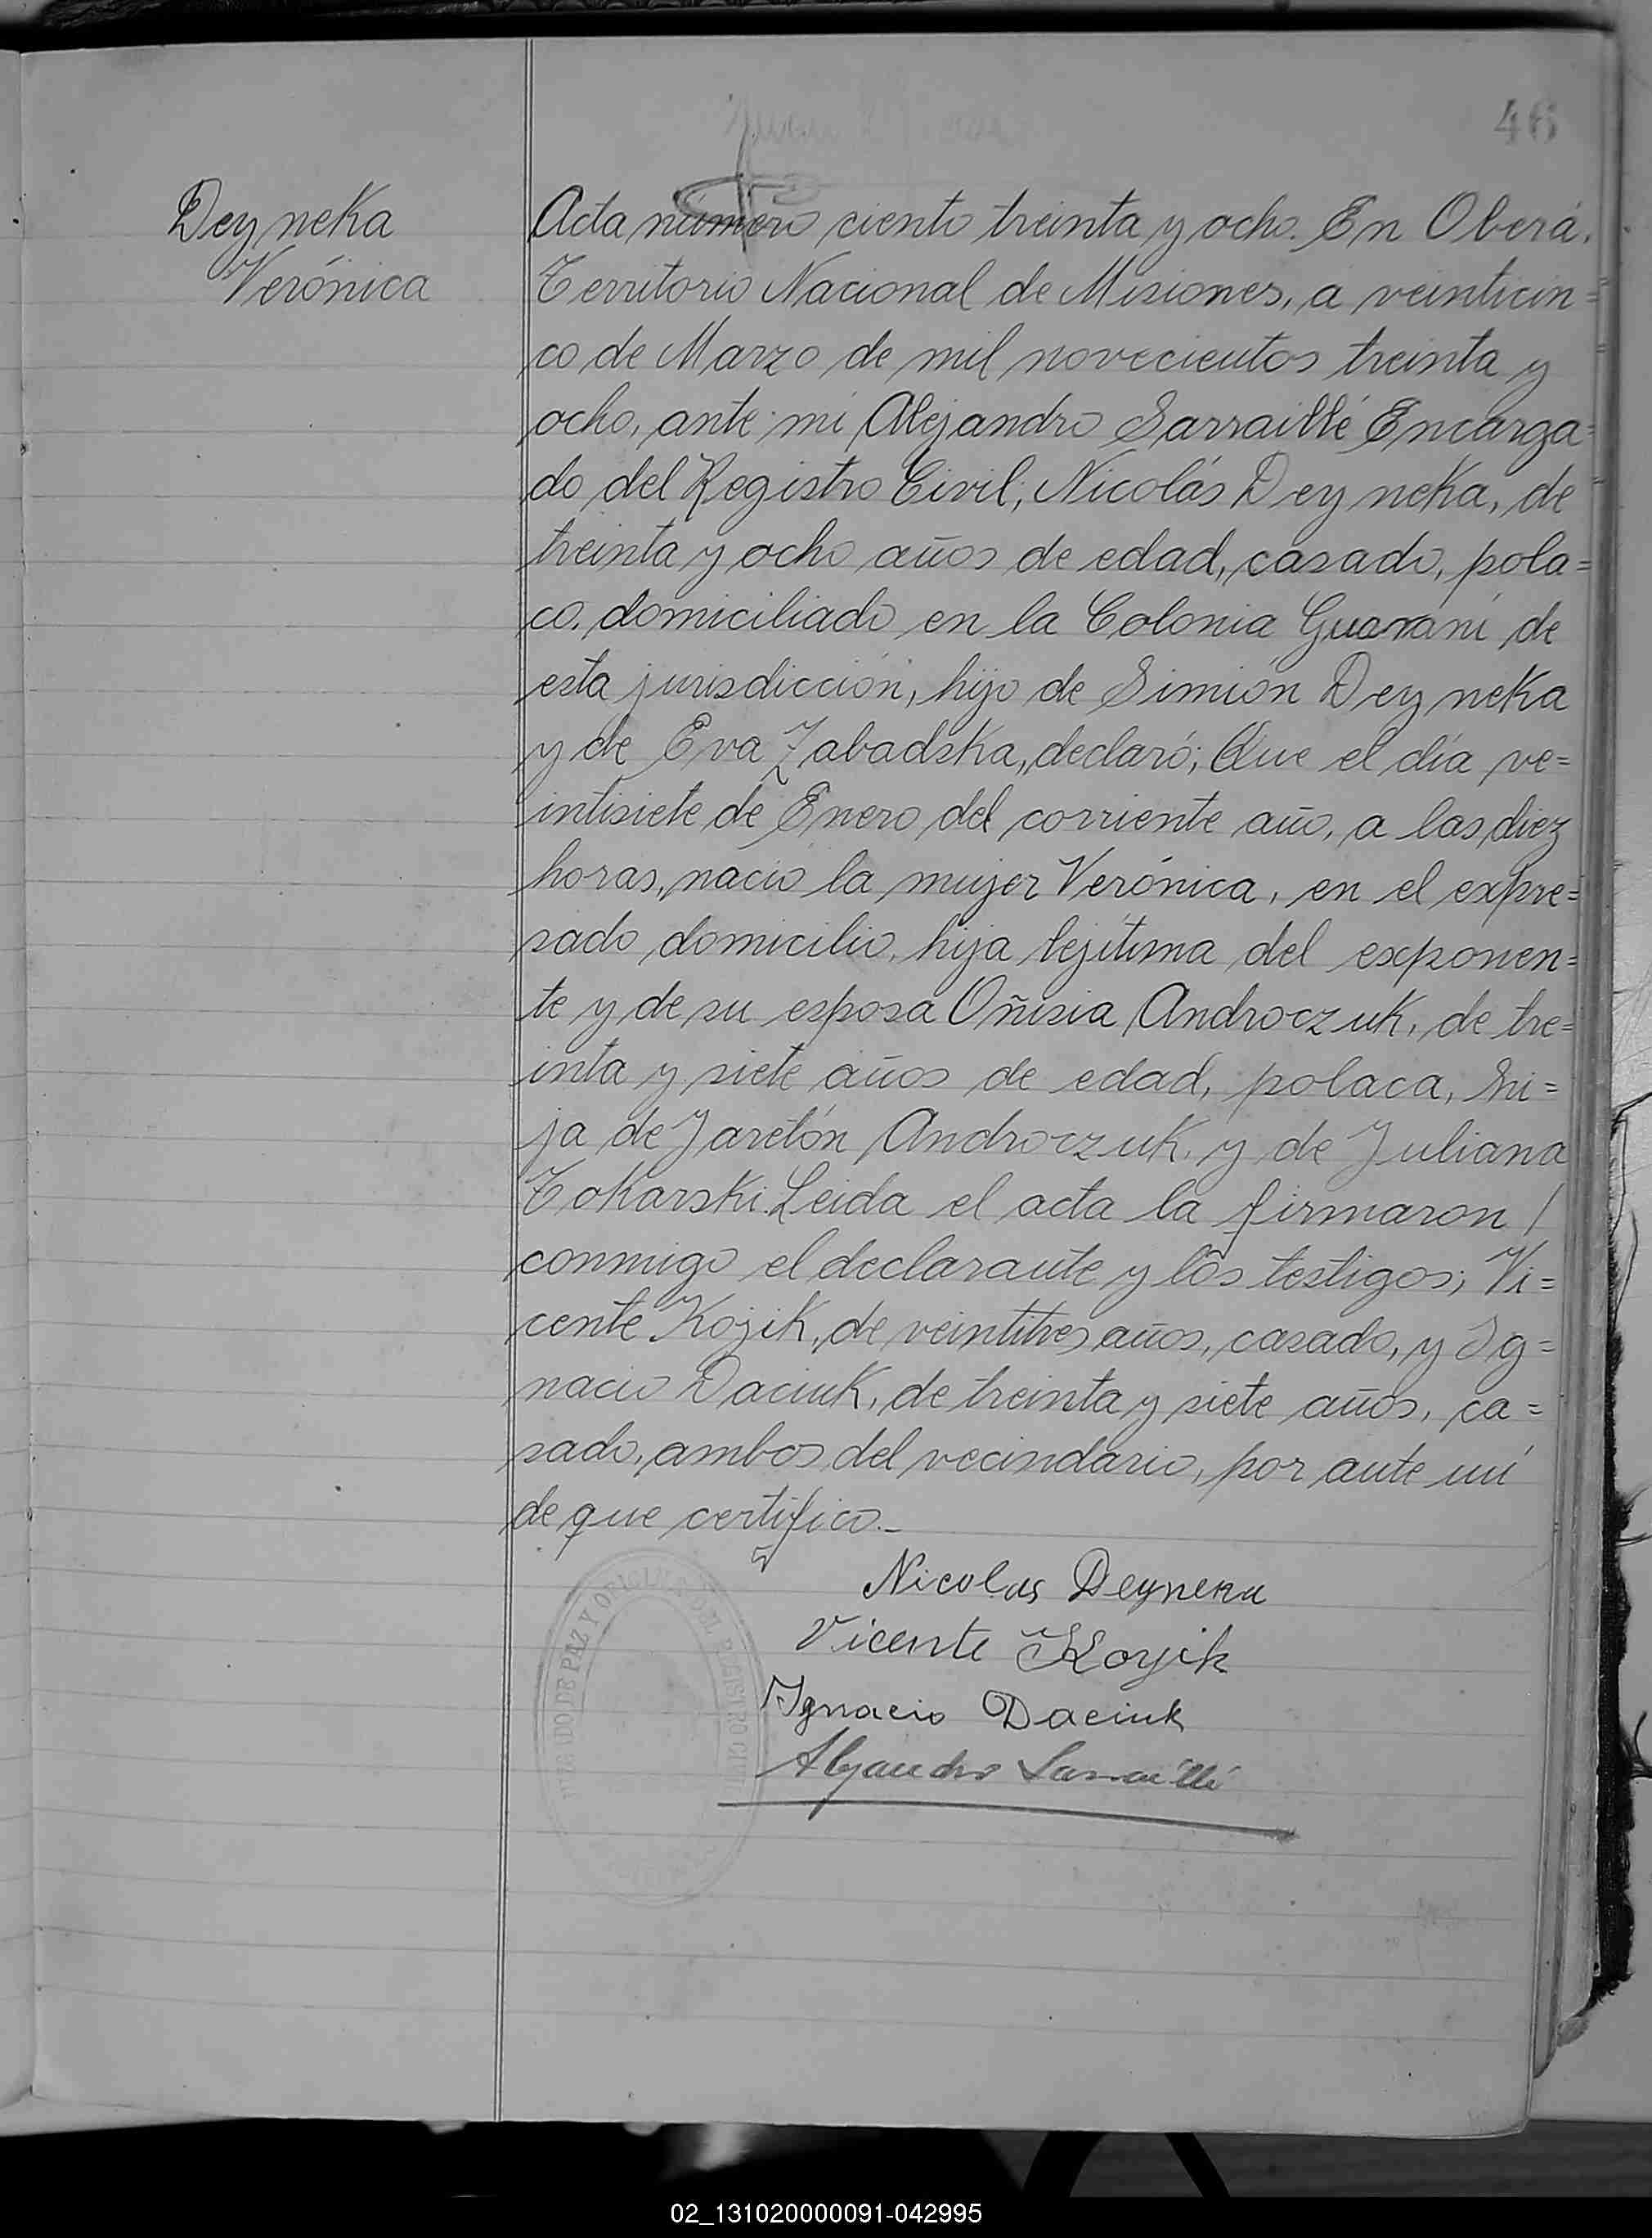 46
Deyneka
Verónica
Acta número ciento treinta y ocho. En Oberá,
Territorio Nacional de Misiones, a veinticin=
co de Marzo de mil novecientos treinta y
ocho, ante mi Alejandro Sarraillé Encarga=
do del Registro Civil; Nicolás Deyneka, de
treinta y ocho años de edad, casado, pola=
co, domiciliado en la Colonia Guaraní de
esta jurisdicción, hijo de Simión Deyneka
y de Eva Zabadska, declaró; Que el día ve=
intisiete de Enero del corriente año, a las diez
horas, nació la mujer Verónica, en el expre=
sado domicilio, hija lejítima del exponen=
te y de su esposa Oñisia Androczuk, de tre=
inta y siete años de edad, polaca, hi=
ja de Jaretón Androczuk y de Juliana
Tokarski. Leida el acta la firmaron /
conmigo el declarante y los testigos; Vi=
cente Kojik, de veintitres años, casado, y Ig=
nacio Daciuk, de treinta y siete años, ca=
sado, ambos del vecindario, por ante mí
de que certifico._
Nicolas Deyneka
Vicente Kojik
Ignacio Daciuk
Alejandro Sarraillé
DE PAZ Y OFICINA DEL REGISTRO CIVIL
02_131020000091-042995